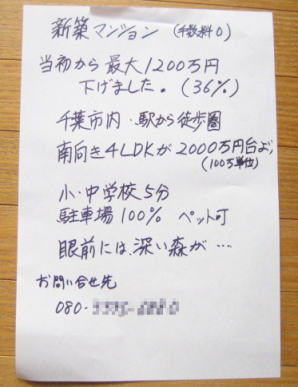 新築マンション (手数料0)
当初から最大1200万円
下げました。(36%)
千葉市内・駅から徒歩圏
南向き4LDKが2000万円台より
(100万単位)
小・中学校5分
駐車場100% ペット可
眼前には、深い森が…
お問い合せ先
080-